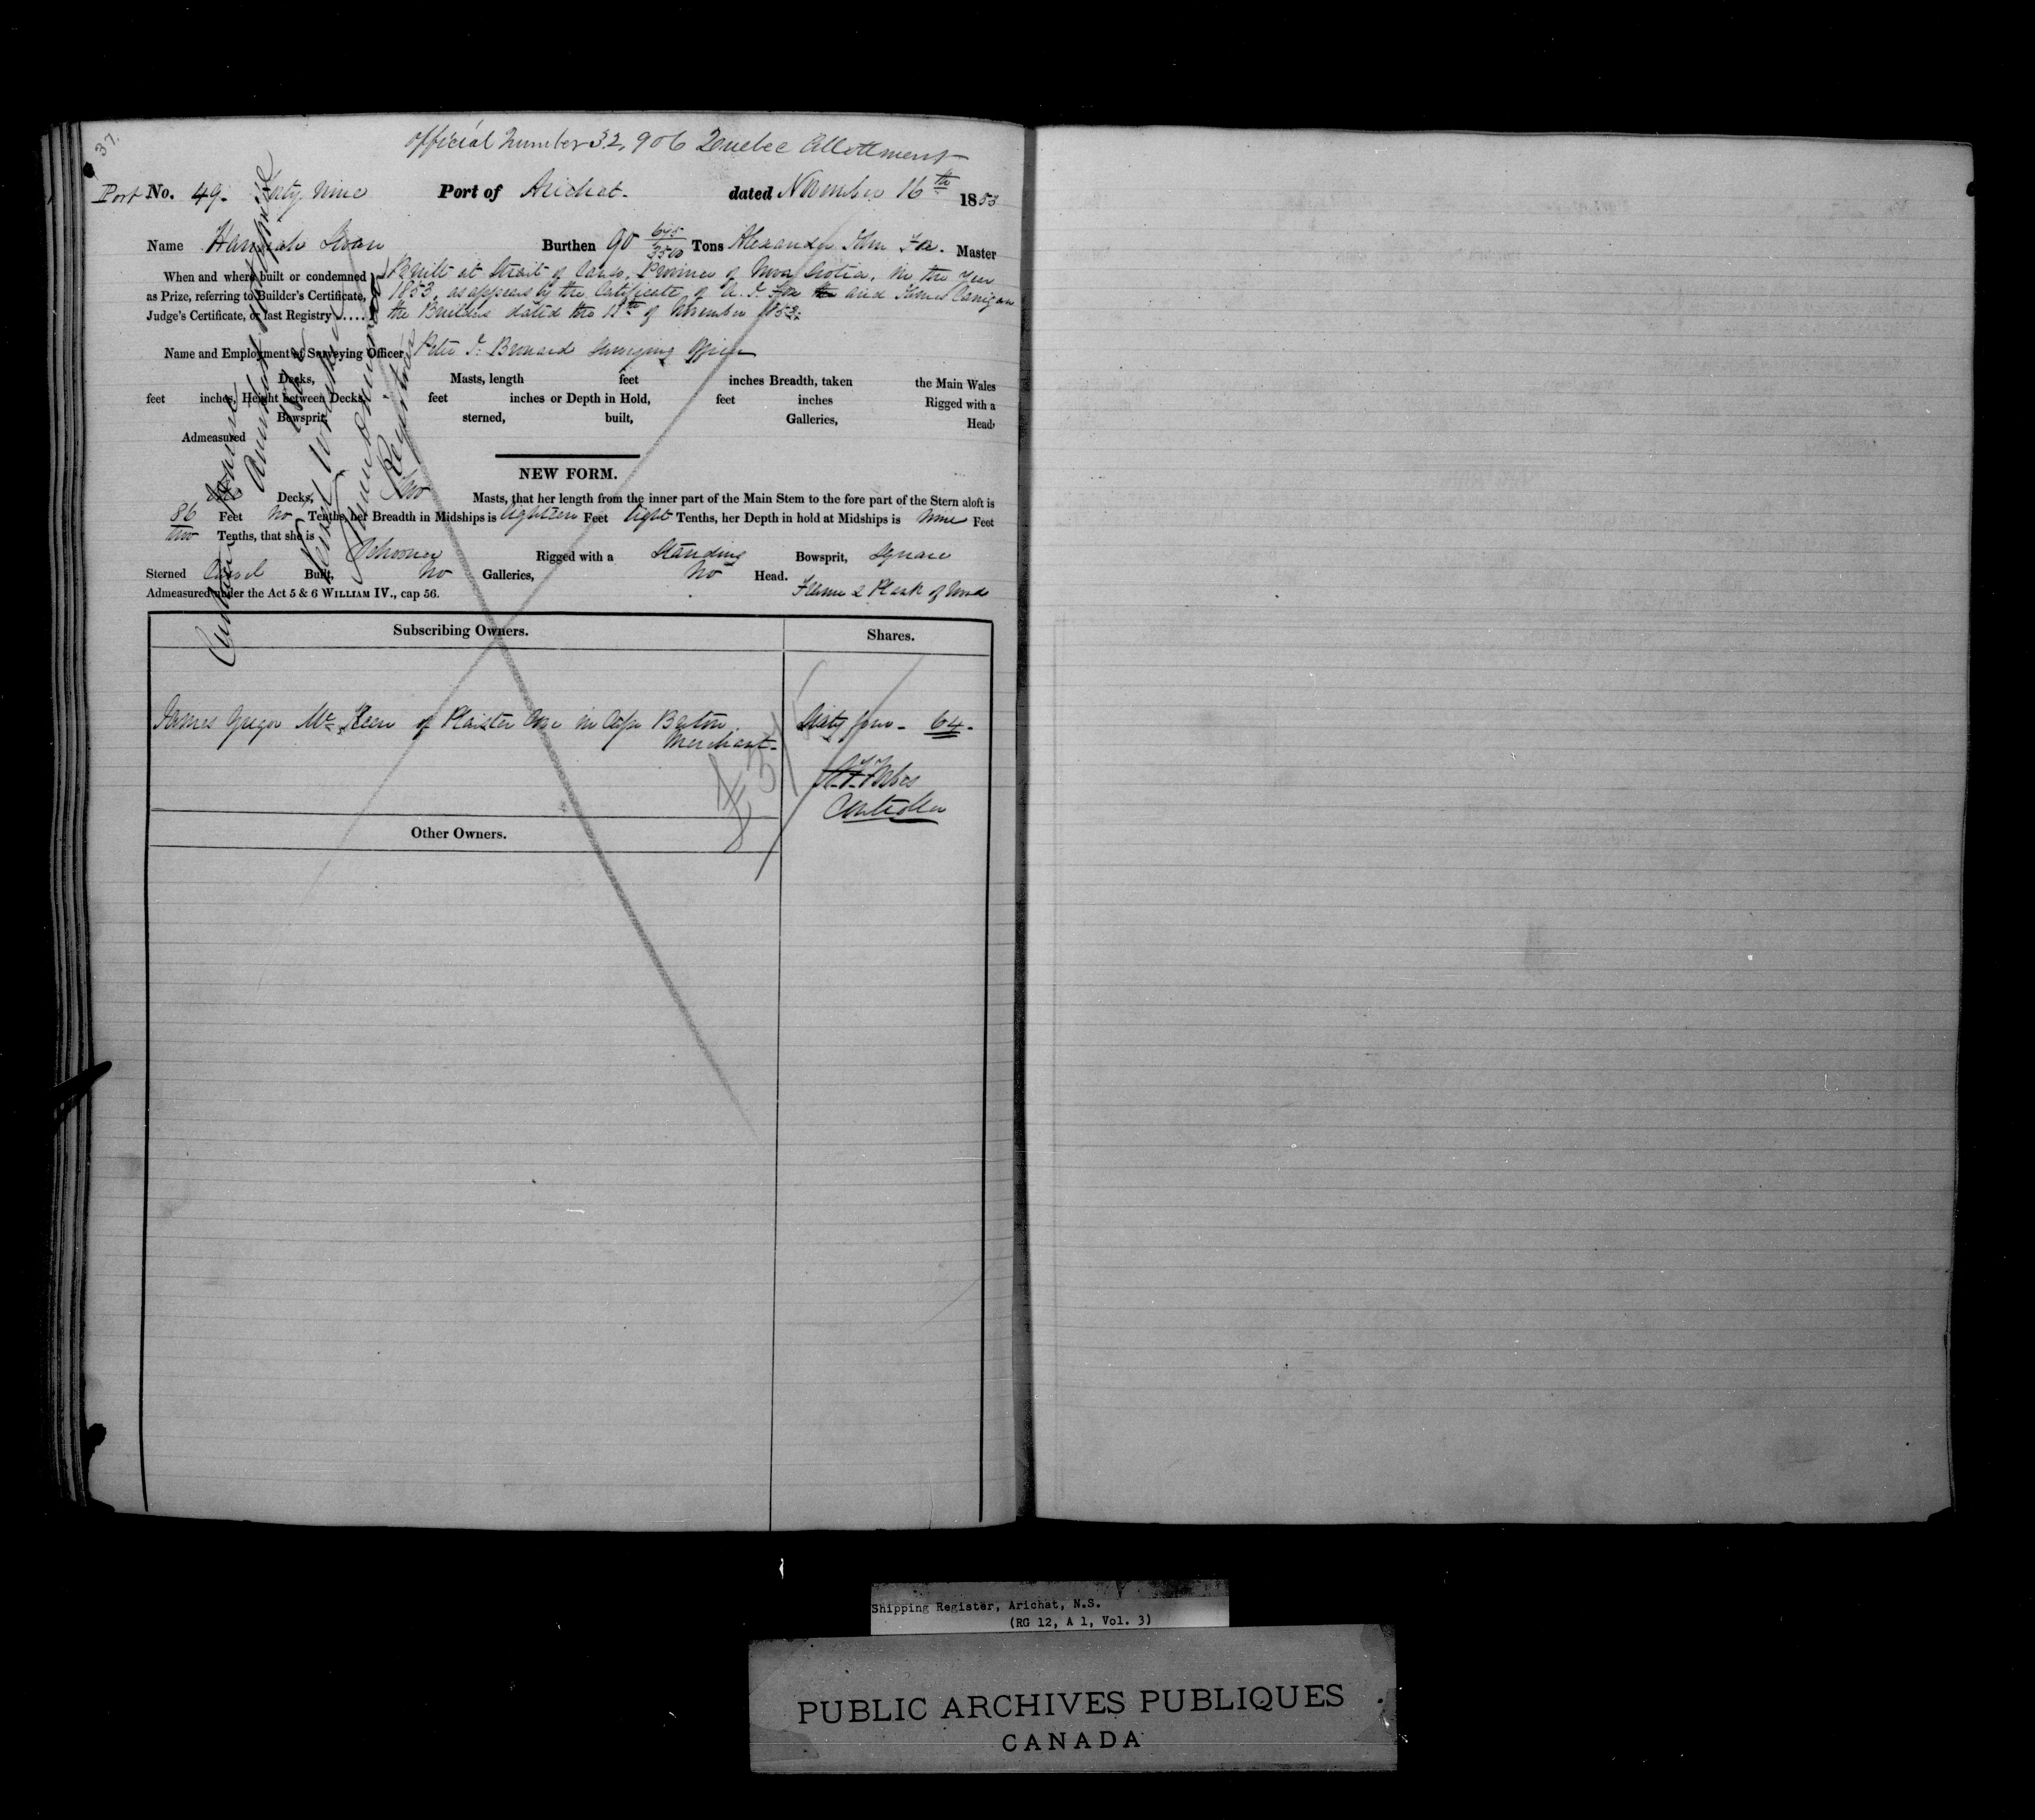 37.
Official Number 32,906 Quebec Allottment
Port No. 49. Forty Nine Port of Arichat. dated November 16th 1853
Name Hannah Burthen 90 645/3500 Tons Alexander John Fox. Master
When and where built or condemned
as Prize, referring to Builder's Certificate,
Judge's Certificate, or last Registry .....
Built at Strait of Canso, Province of Nova Scotia, in the Year
1853, as appears by the Certificate of A. J. Fox and James
the Builders dated the of November 1853.
Name and Employment of Surveying Officer Peter J. Surveying Officer
Decks, Masts, length feet inches Breadth, taken the Main Wales
feet inches, Height between Decks, feet inches or Depth in Hold, feet inches Rigged with a
Bowsprit, sterned, built, Galleries, Head,
Admeasured
NEW FORM.
One Decks, Two Masts, that her length from the inner part of the Main Stem to the fore part of the Stern aloft is
86 Feet No Tenths, her Breadth in Midships is Eighteen Feet Eight Tenths, her Depth in hold at Midships is Nine Feet
two Tenths, that she is Schooner Rigged with a Standing Bowsprit, Square
Sterned Carvel Built, No Galleries, No Head.
Admeasured under the Act 5 & 6 WILLIAM IV., cap 56. Frame & Plank of Wood
Subscribing Owners. Shares.
James Gregor McKeen of Plaister Cove in Cape Breton Sixty four - 64 -
Merchant-
Controller
Other Owners.
Registrar
Shipping Register, Arichat, N.S.
(RG 12, A 1, Vol. 3)
PUBLIC ARCHIVES PUBLIQUES
CANADA